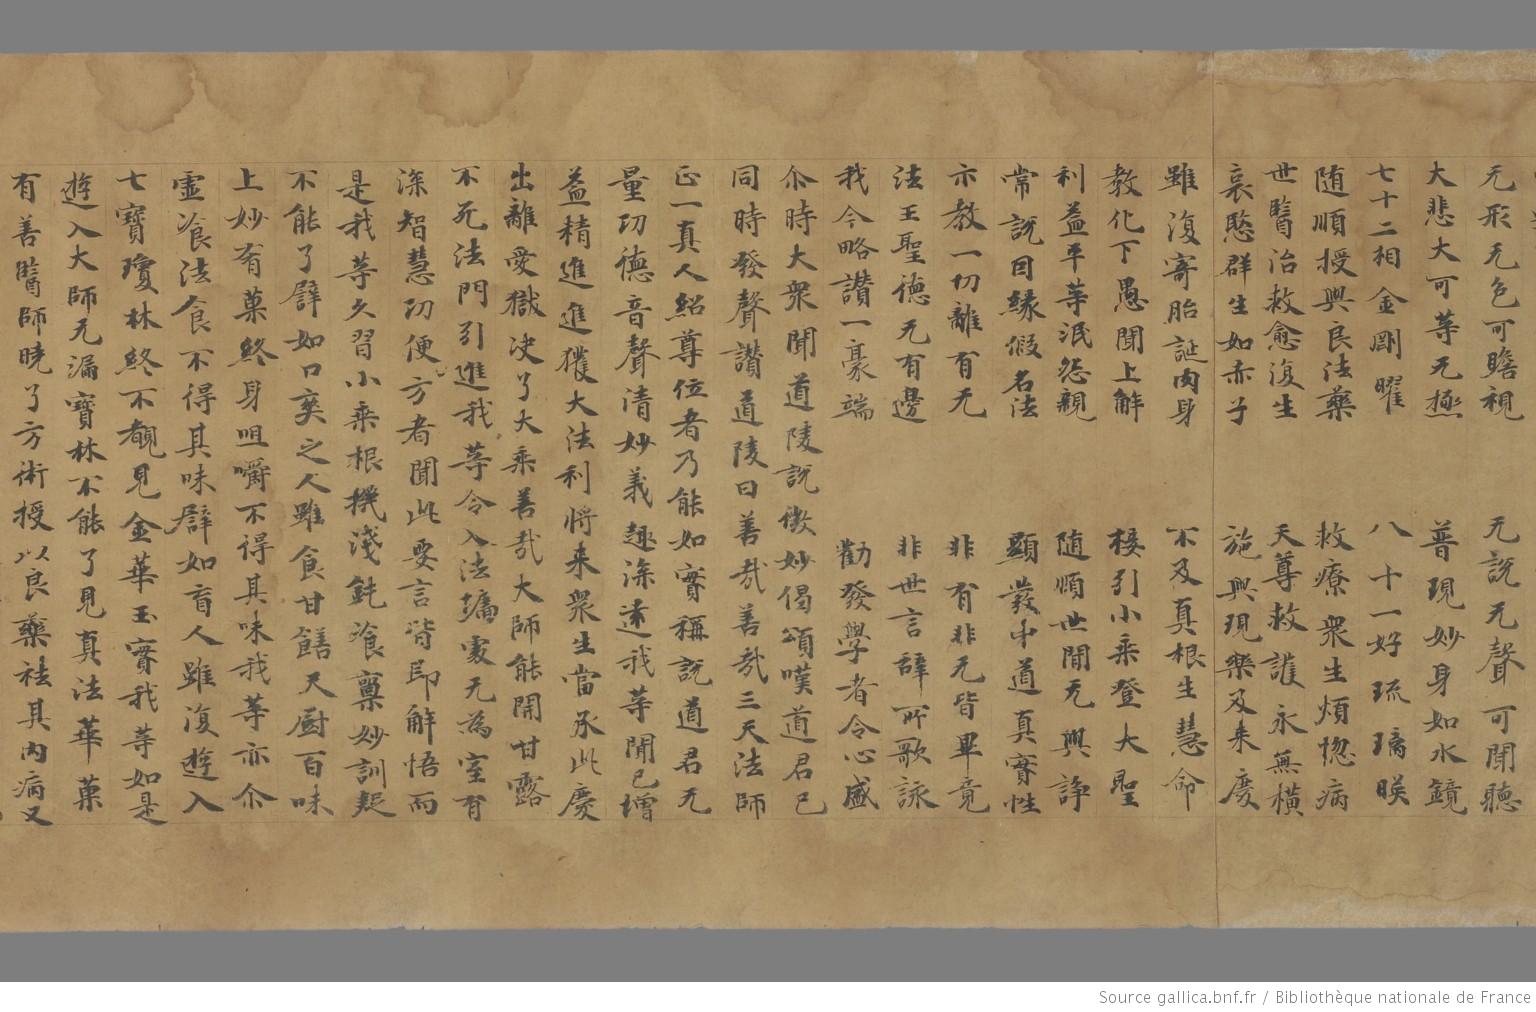 无形无色可瞻視 无說无聲可聞聽
大悲大可等无極 普現妙身如水鏡
七十二相金剛曜 八十一好琉璃暎
随順授與良法藥 救療衆生煩惚病
世醫治救愈復生 天尊救護永無橫
哀愍群生如赤子 施與現樂及来慶
雖復寄胎誕肉身 不及真根生慧命
教化下愚聞上解 椄引小乗登大聖
利益平等泯怨親 随順世間无與諍
常說因緣假名法 顯發中道真實性
示教一切離有无 非有非无皆畢竟
法王聖德无有邊 非世言辞所歌詠
我今略讃一豪端 勸發學者令心盛
尒時大衆聞道陵說微妙偈頌嘆道君已
同時發聲讃道陵曰善哉善哉三天法師
正一真人紹尊位者乃能如實稱說道君无
量功德音聲清妙義趣深逺我等聞已增
益精進進獲大法利将来衆生當承此慶
出離愛獄决了大乗善哉大師能開甘露
不死法門引進我等令入法墉裏无為室宥
深智慧功便方者聞此要言皆即解悟而
是我等久習小乗根機淺鈍飡稟妙訓疑
不能了譬如口爽之人雖食甘饍天廚百味
上妙肴菓終身咀嚼不得其味我等亦尒
雖飡法食不得其味譬如盲人雖復遊入
七寶瓊林終不覩見金華玉實我等如是
遊入大師无漏寶林不能了見真法華菓
有善醫師暁了方術授以良藥祛其内病又